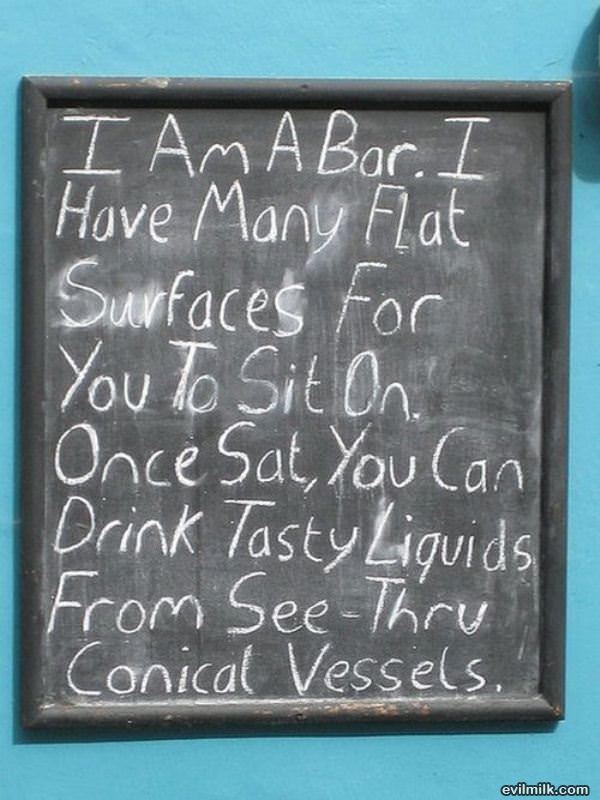 I Am A Bar. I
Have Many Flat
Surfaces For
You To Sit On.
Once Sat, You Can
Drink Tasty Liquids
From See-Thru
Conical Vessels.
evilmilk.com